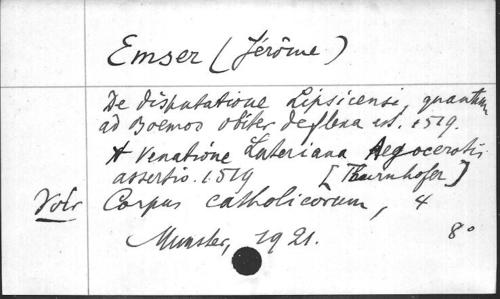 Emser (Jérôme)
De disputatione Lipsicensi, quantum
ad Boemos obiter deflexa est. 1519.
A Venatione Luteriana Aegocerotis
assertio. 1519 [Thurnhofer]
Volr Corpus catholicorum, 4
Munster, 1921. 8°